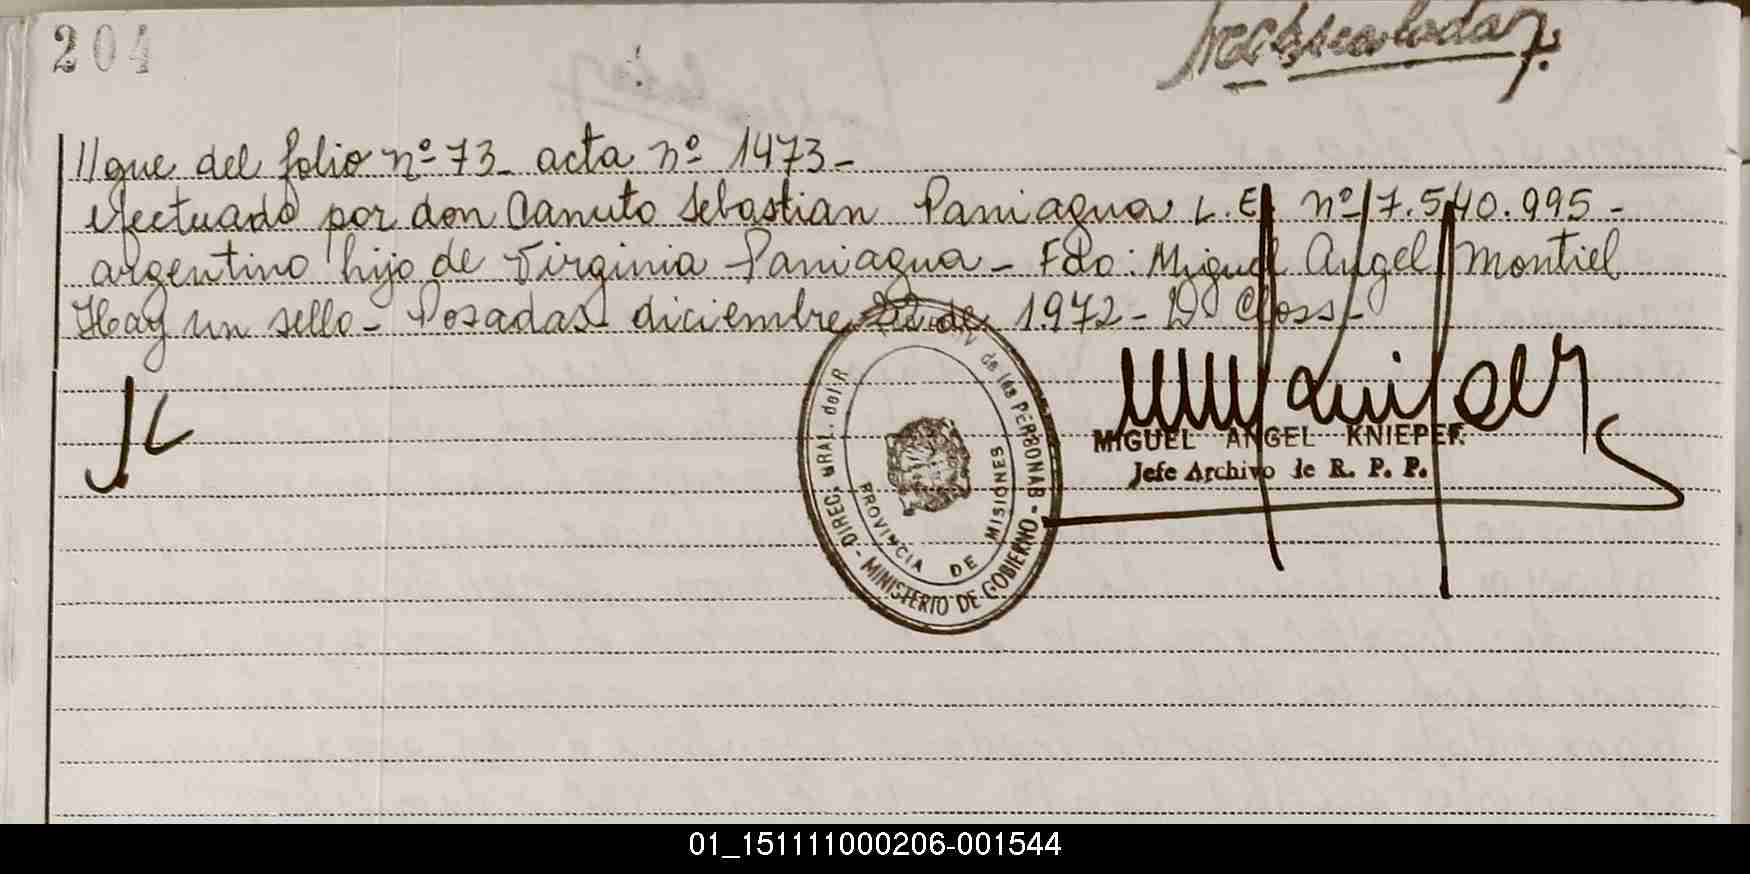 204
//gue del folio nº 73_ acta nº 1473_
efectuado por don Canuto Sebastian Paniagua L.E. nº 7.540.995_
argentino hijo de Virginia Paniagua_ Fdo: Miguel Angel Montiel
Hay un sello_ Posadas diciembre 22 de 1972_
DIREC. GRAL. del R CIV de las PERSONAS - MINISTERIO DE GOBIERNO -
PROVINCIA DE MISIONES
MIGUEL ANGEL KNIEPER
Jefe Archivo de R. P. P.
01_151111000206-001544